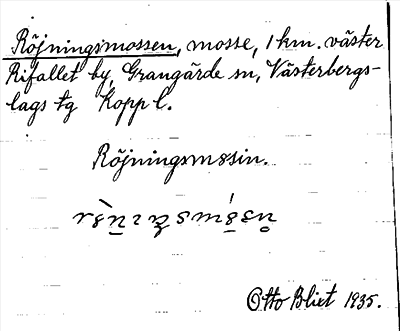 Röjningsmossen, mosse, 1 km. väster
Rifallet by, Grangärde sn, Västerbergs-
lags tg Kopp l.
Röjningsmosin.
Otto Blixt 1935.